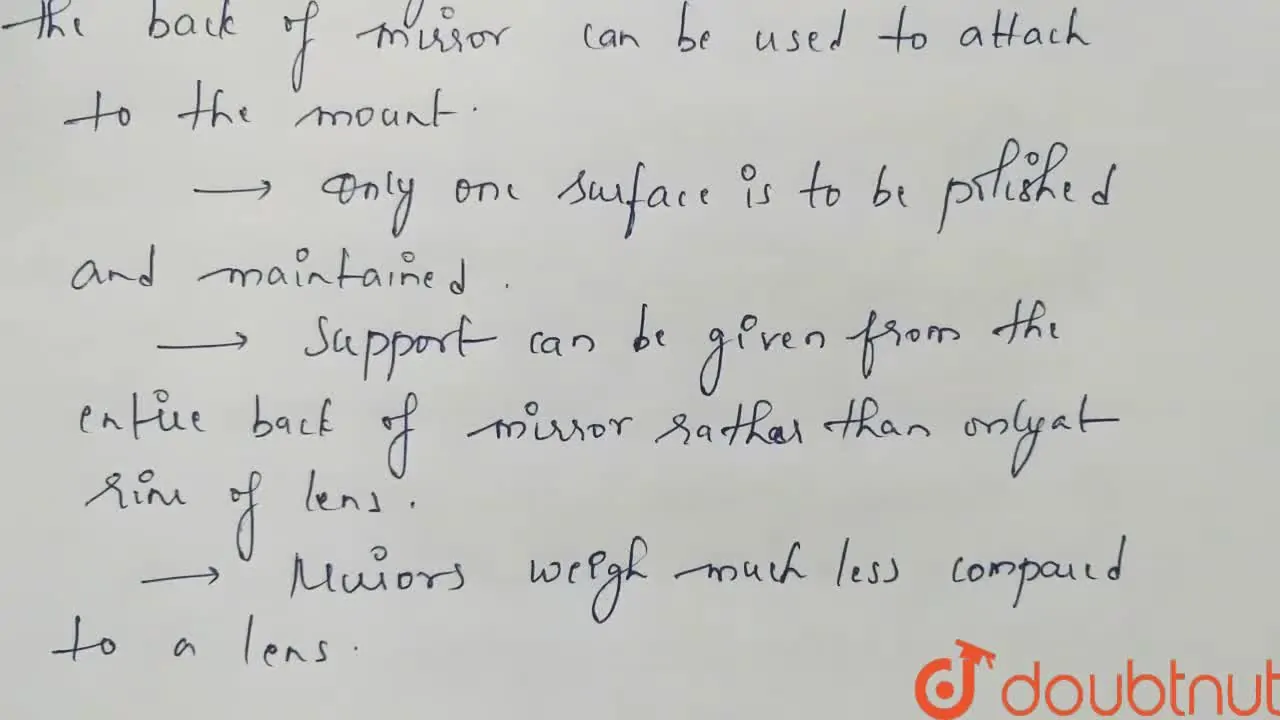 the back of mirror can be used to attach
to the mount.
→ Only one surface is to be polished
and maintained.
→ Support can be given from the
entire back of mirror rather than only at
rim of lens.
→ Mirrors weigh much less compared
to a lens.
doubtnut